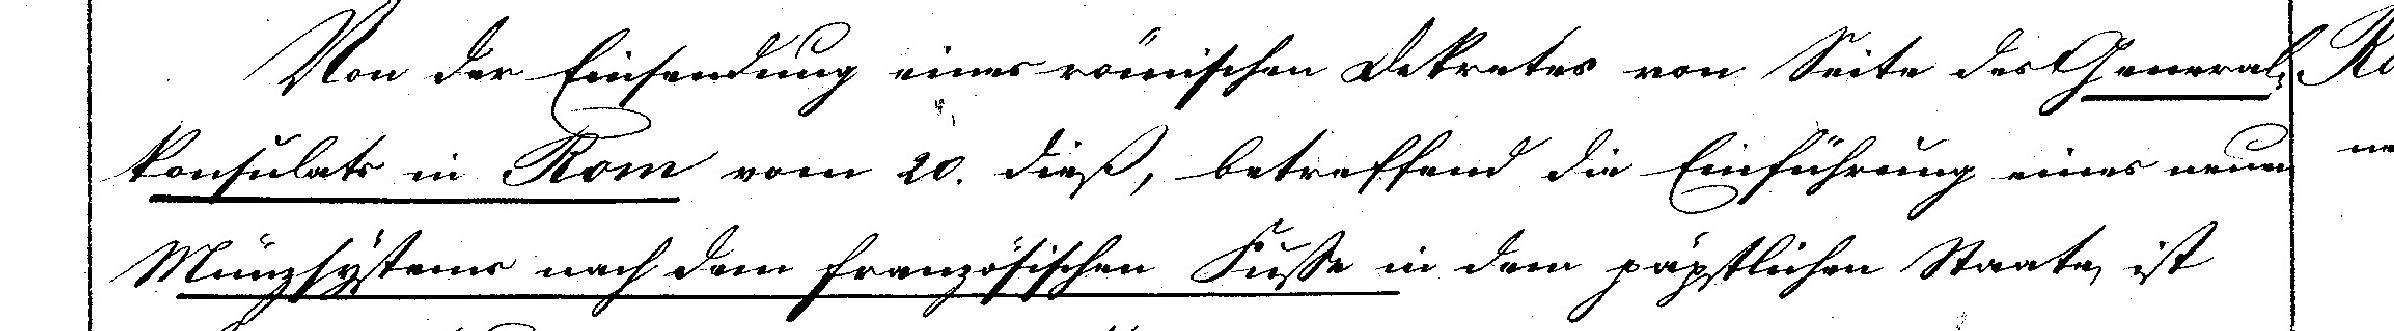 Von der Einsendung eines römischen Dekretes von Seite des General-
konsulats in Rom vom 20. dieß, betreffend die Einführung eines neuen
Münzsystems nach dem französischen Fusse in dem päpstlichen Staate, ist